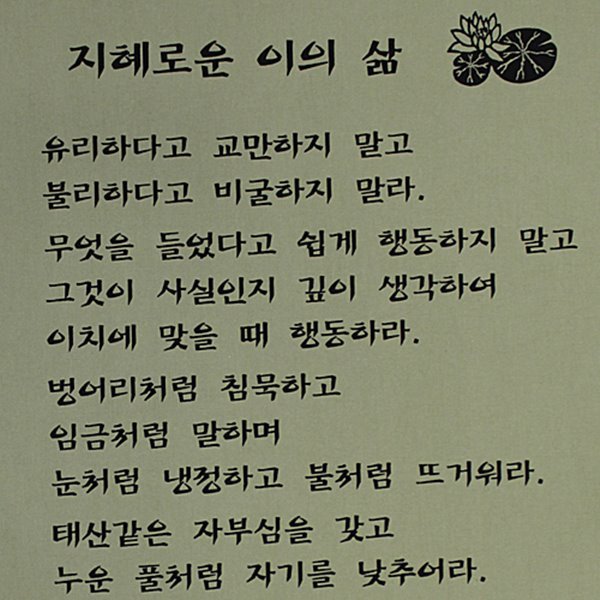 지혜로운 이의 삶
유리하다고 교만하지 말고
불리하다고 비굴하지 말라.
무엇을 들었다고 쉽게 행동하지 말고
그것이 사실인지 깊이 생각하여
이치에 맞을 때 행동하라.
벙어리처럼 침묵하고
임금처럼 말하며
눈처럼 냉정하고 불처럼 뜨거워라.
태산같은 자부심을 갖고
누운 풀처럼 자기를 낮추어라.